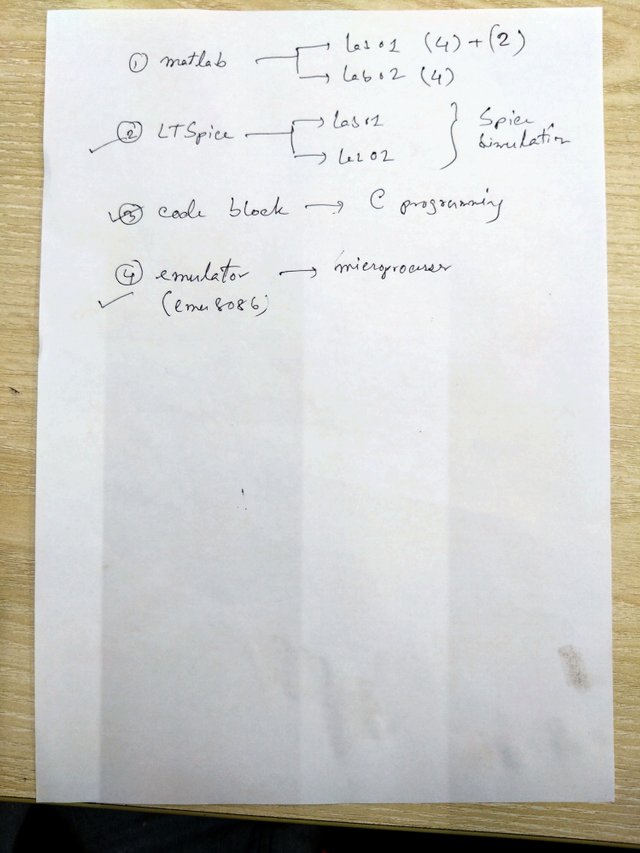 ① matlab → Lab 01 (4) + (2)
→ Lab 02 (4)
② LTSpice → Lab 01
→ Lab 02
Spice
Simulation
③ code block → C programming
④ emulator → microprocesser
(emu8086)